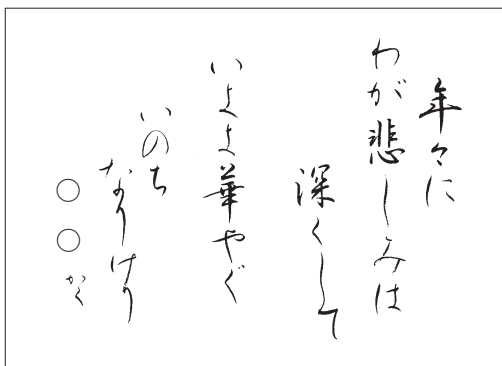 年々に
わが悲しみは
深くして
いよよ華やぐ
いのち
なりけり
○○かく